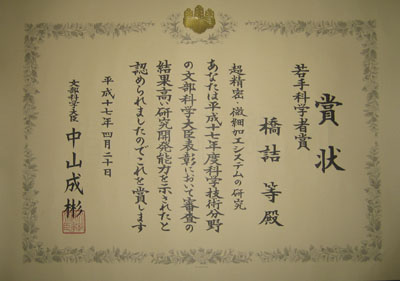 賞状
若手科学者賞
橋詰 等殿
超精密・微細加工システムの研究
あなたは平成十七年度科学技術分野
の文部科学大臣表彰において審査の
結果高い研究開発能力を示されたと
認められましたのでこれを賞します
平成十七年四月二十日
文部科学大臣 中山成彬